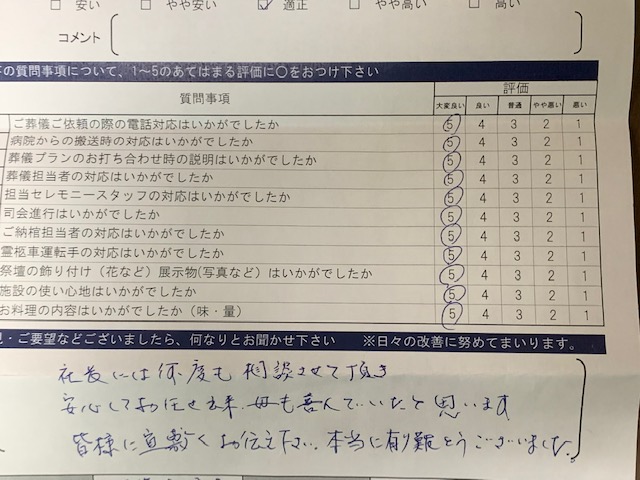 安い やや安い 適正 やや高い 高い
コメント
の質問事項について、1～5のあてはまる評価に○をおつけ下さい
質問事項 評価
大変良い 良い 普通 やや悪い 悪い
ご葬儀ご依頼の際の電話対応はいかがでしたか 5 4 3 2 1
病院からの搬送時の対応はいかがでしたか 5 4 3 2 1
葬儀プランのお打ち合わせ時の説明はいかがでしたか 5 4 3 2 1
葬儀担当者の対応はいかがでしたか 5 4 3 2 1
担当セレモニースタッフの対応はいかがでしたか 5 4 3 2 1
司会進行はいかがでしたか 5 4 3 2 1
ご納棺担当者の対応はいかがでしたか 5 4 3 2 1
霊柩車運転手の対応はいかがでしたか 5 4 3 2 1
祭壇の飾り付け（花など）展示物(写真など）はいかがでしたか 5 4 3 2 1
施設の使い心地はいかがでしたか 5 4 3 2 1
お料理の内容はいかがでしたか（味・量） 5 4 3 2 1
・ご要望などございましたら、何なりとお聞かせ下さい ※日々の改善に努めてまいります。
社長には何度も相談させて頂き
安心してお任せ出来 母も喜んでいたと思います
皆様に宜敷くお伝え下さい。本当に有り難とうございました。